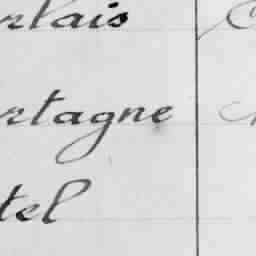 rlais
rtagne
tel